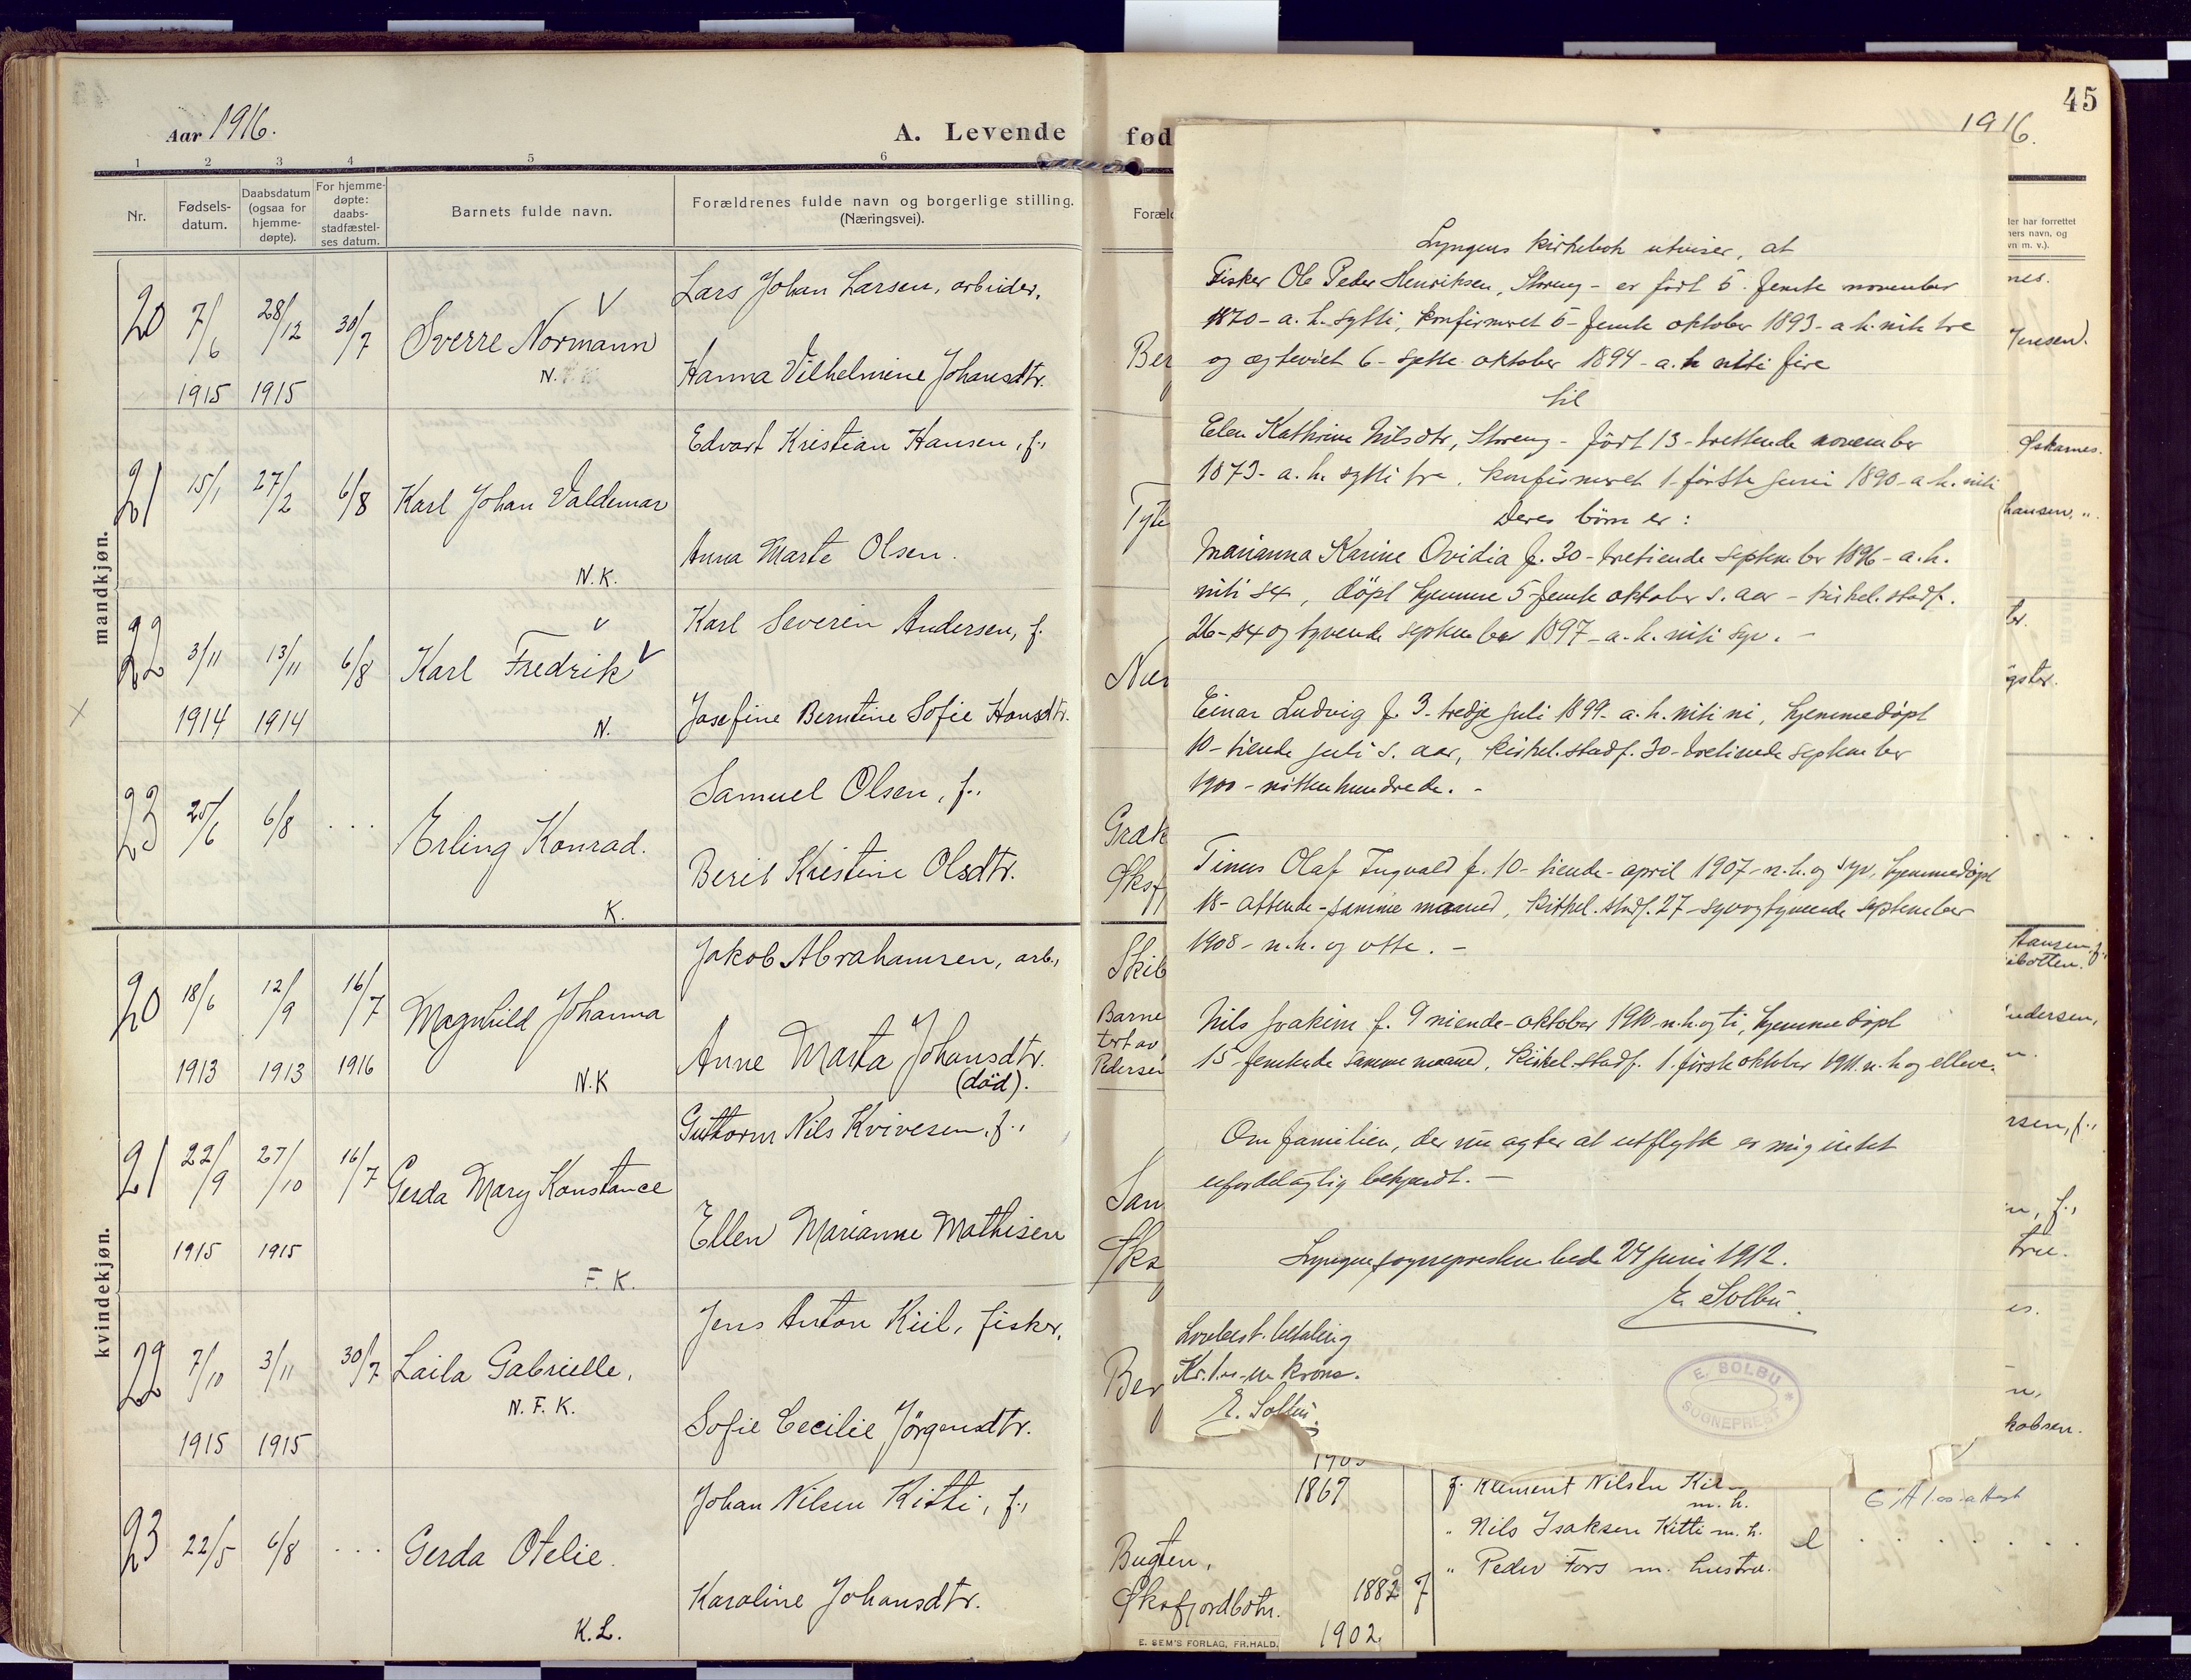 Aar 1916.
A. Levende
1 2 3 4 5 6
Nr.
Fødsels-
datum.
Daabsdatum
(ogsaa for
hjemme-
døpte).
For hjemme-
døpte:
daabs-
stadfæstel-
ses datum.
Barnets fulde navn.
Forældrenes fulde navn og borgerlige stilling.
(Næringsvei).
mandkjøn.
Lars Johan Larsen, arbeider.
20 7/6 28/12 30/7 Sverre Normann
1915 1915 N. Hanna Vilhelmine Johansdtr.
Edvart Kristian Hansen, f.,
21 15/1 27/2 6/8 Karl Johan Valdemar
Anna Marte Olsen.
N.K.
Karl Severin Andersen, f.
22 3/11 13/11 6/8 Karl Fredrik
1914 1914 N. Josefine Berntine Sofie Hansdtr.
Samuel Olsen, f.,
23 25/6 6/8 . . . Erling Konrad.
Berit Kristine Olsdtr.
K.
kvindekjøn.
Jakob Abrahamsen, arb.,
20 18/6 12/9 16/7 Magnhild Johanna
1913 1913 1916 N.K Anne Marta Johansdtr.
(död).
Guttorm Nils Kvivesen, f.,
21 22/9 27/10 16/7 Gerda Mary Konstance
1915 1915 Ellen Marianne Mathisen
F. K.
Jens Anton Kiil, fisker.
22 7/10 3/11 30/7 Laila Gabrielle.
N. F. K.
1915 1915 Sofie Cecilie Jørgensdtr.
Johan Nilsen Kitti, f.,
23 22/5 6/8 . . . Gerda Otelie.
Karoline Johansdtr.
K.L.
45
1916.
fød
Foræld
Ber
Tyte
Nor
Græk
Skib
Barne
tert av
Pedersen
San
Øks
Ber
Lyngens kirkebok utviser, at
Fisker Ole Peder Henriksen, Storeng - er født 5. femte november
1870 - a. h. sytti, konfirmeret 5 - femte oktober 1893 - a. h. niti tre
og ægteviet 6 - sjette oktober 1894 - a. h. niti fire
til
Elen Kathrine Nilsdtr, Storeng - født 13 - trettende november
1873 - a. h. sytti tre, konfirmeret 1 - første juni 1890 - a. h. niti
Deres børn er:
Marianna Karine Ovidia f. 30 - tretiende september 1896 - a. h.
niti sex, døpt hjemme 5 femte oktober s. aar - kirkel. stadf.
26 - sex og tyvende september 1897 - a. h. niti syv. -
Einar Ludvig f. 3 - tredje juli 1899 - a. h. niti ni, hjemmedøpt
10 - tiende juli s. aar, kirkel. stadf. 30 - tretiende september
1900 - nittenhundrede. -
Tinus Olaf Ingvald f. 10 - tiende - april 1907 - n. h. og syv, hjemmedøpt
18 - attende - samme maaned, kirkel. stadf. 27 - syvogtyvende september
1908 - n. h. og otte. -
Nils Joakim f. 9 niende - oktober 1910 - n. h. og ti, hjemmedøpt
15 - femtende samme maaned, kirkel. stadf. 1. første oktober 1911. n. h. og elleve.
Om familien, der nu agter at utflytte er mig intet
ufordelagtig bekjendt. -
Lyngens sogneprestembede 24 juni 1912.
E. Solbu.
Lovbest. betaling
Kr. 1.- en krone.
E. Solbu.
E. SOLBU *
SOGNEPREST
der har forrettet
ners navn, og
vn m. v.).
nes.
Jensen).
Øskarnes.
hansen, „.
Hansen, f.,
ibotten.
ndersen,
rsen, f.,
kobsen.
1867
f. Klement Nilsen Kil
m. h.
" Nils Isaksen Kitti m. h.
" Peder Fors m. hustru.
Bugten,
Øksfjordbotn.
1882
1902
E. SEM'S FORLAG, FR.HALD.